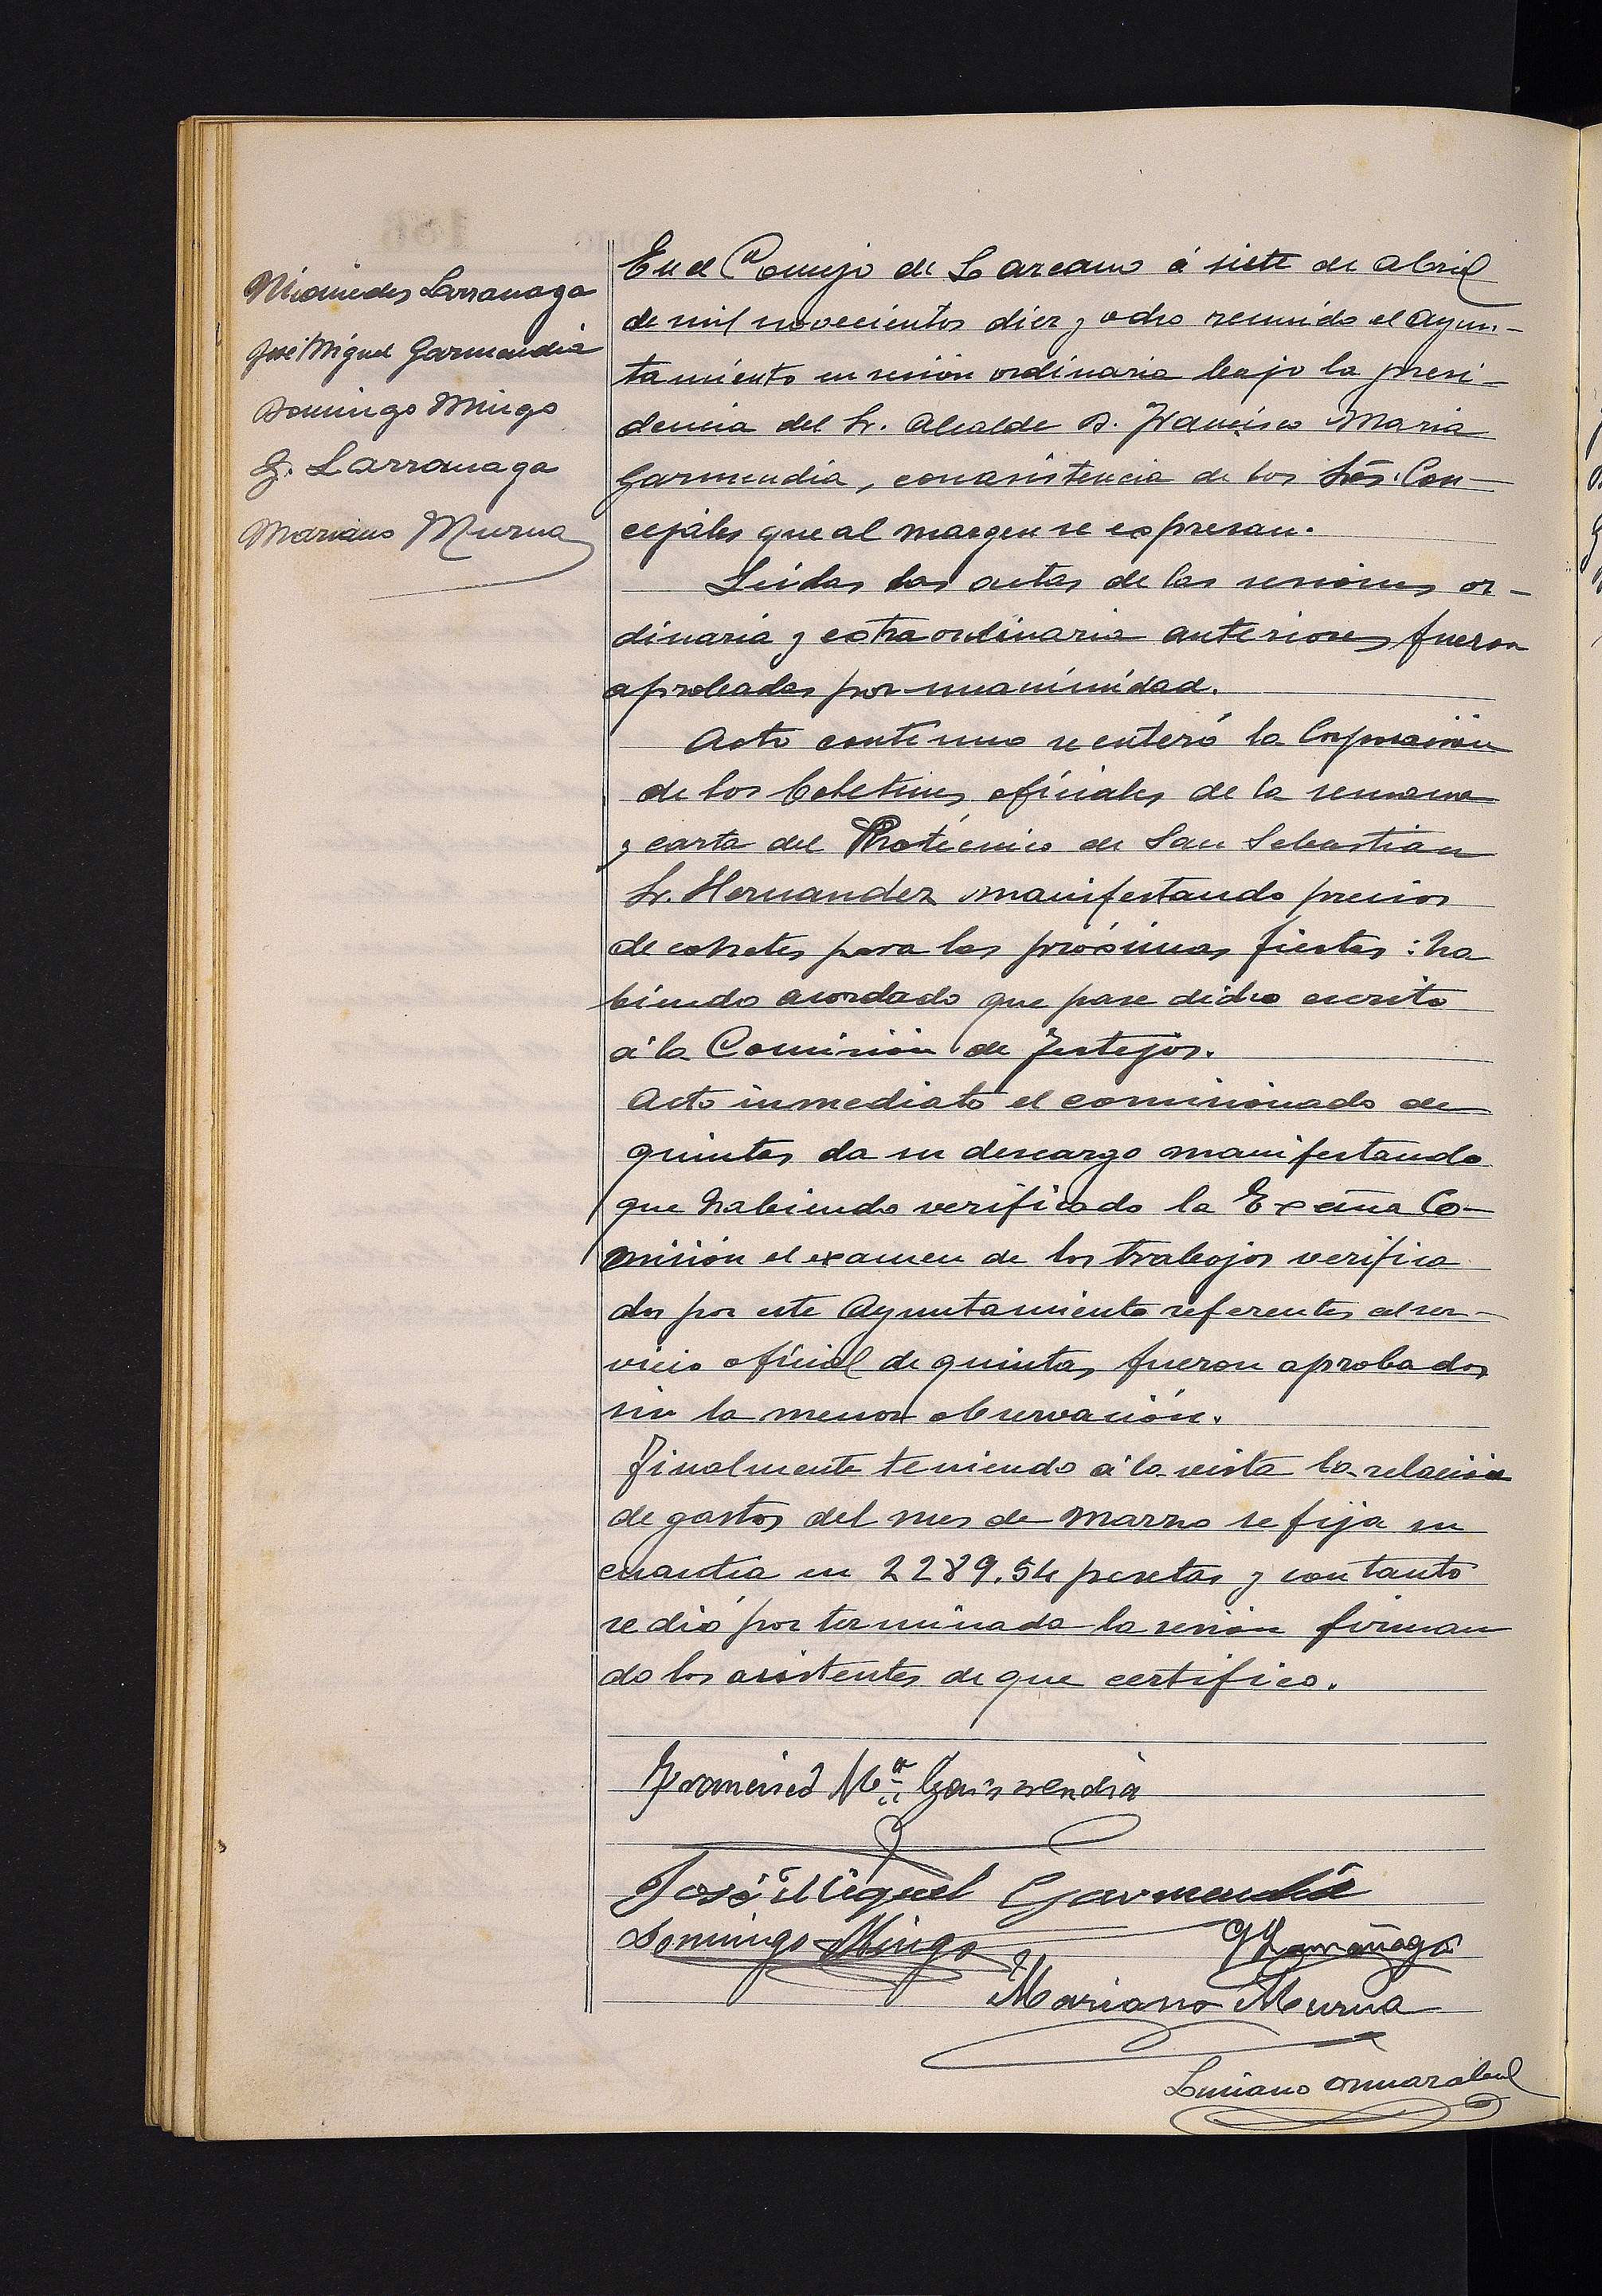 Nicomedes Larranaga
José Miguel Garmendia
Domingo Mingo
G. Larranaga
Mariano Murua
En el Concejo de Lazcano á siete de Abril
de mil novecientos diez y ocho reunido el Ayun-
tamiento en sesión ordinaria bajo la presi-
dencia del Sr. Alcalde D. Francisco Maria
Garmendia, con asistencia de los Srēs. Con-
cejales que al margen se expresan.
Leidas las actas de las sesiones or-
dinaria y extraordinaria anteriores fueron
aprobadas por unanimidad.
Acto contínuo se enteró la Corporación
de los boletines oficiales de la semana
y carta del Pirotécnico de San Sebastian
Sr. Hernandez manifestando precios
de cohetes para las próximas fiestas: ha
biendo acordado que pase dicho escrito
á la Comisión de Festejos.
Acto inmediato el comisionado de
quintas da su descargo manifestando
que habiendo verificado la Excm̄a Co-
misión el examen de los trabajos verifica
dos por este Ayuntamiento referentes al ser-
vicio oficial de quintas, fueron aprobados
sin la menor observación.
Finalmente teniendo á la vista la relación
de gastos del mes de Marzo se fija su
cuantía en 2289.54 pesetas y con tanto
se dió por terminada la sesión firman
do los asistentes de que certifico.
Francisco Mª Garmendia
José Miguel Garmendia
Domingo Mingo G Larrañaga
Mariano Murua
Luciano